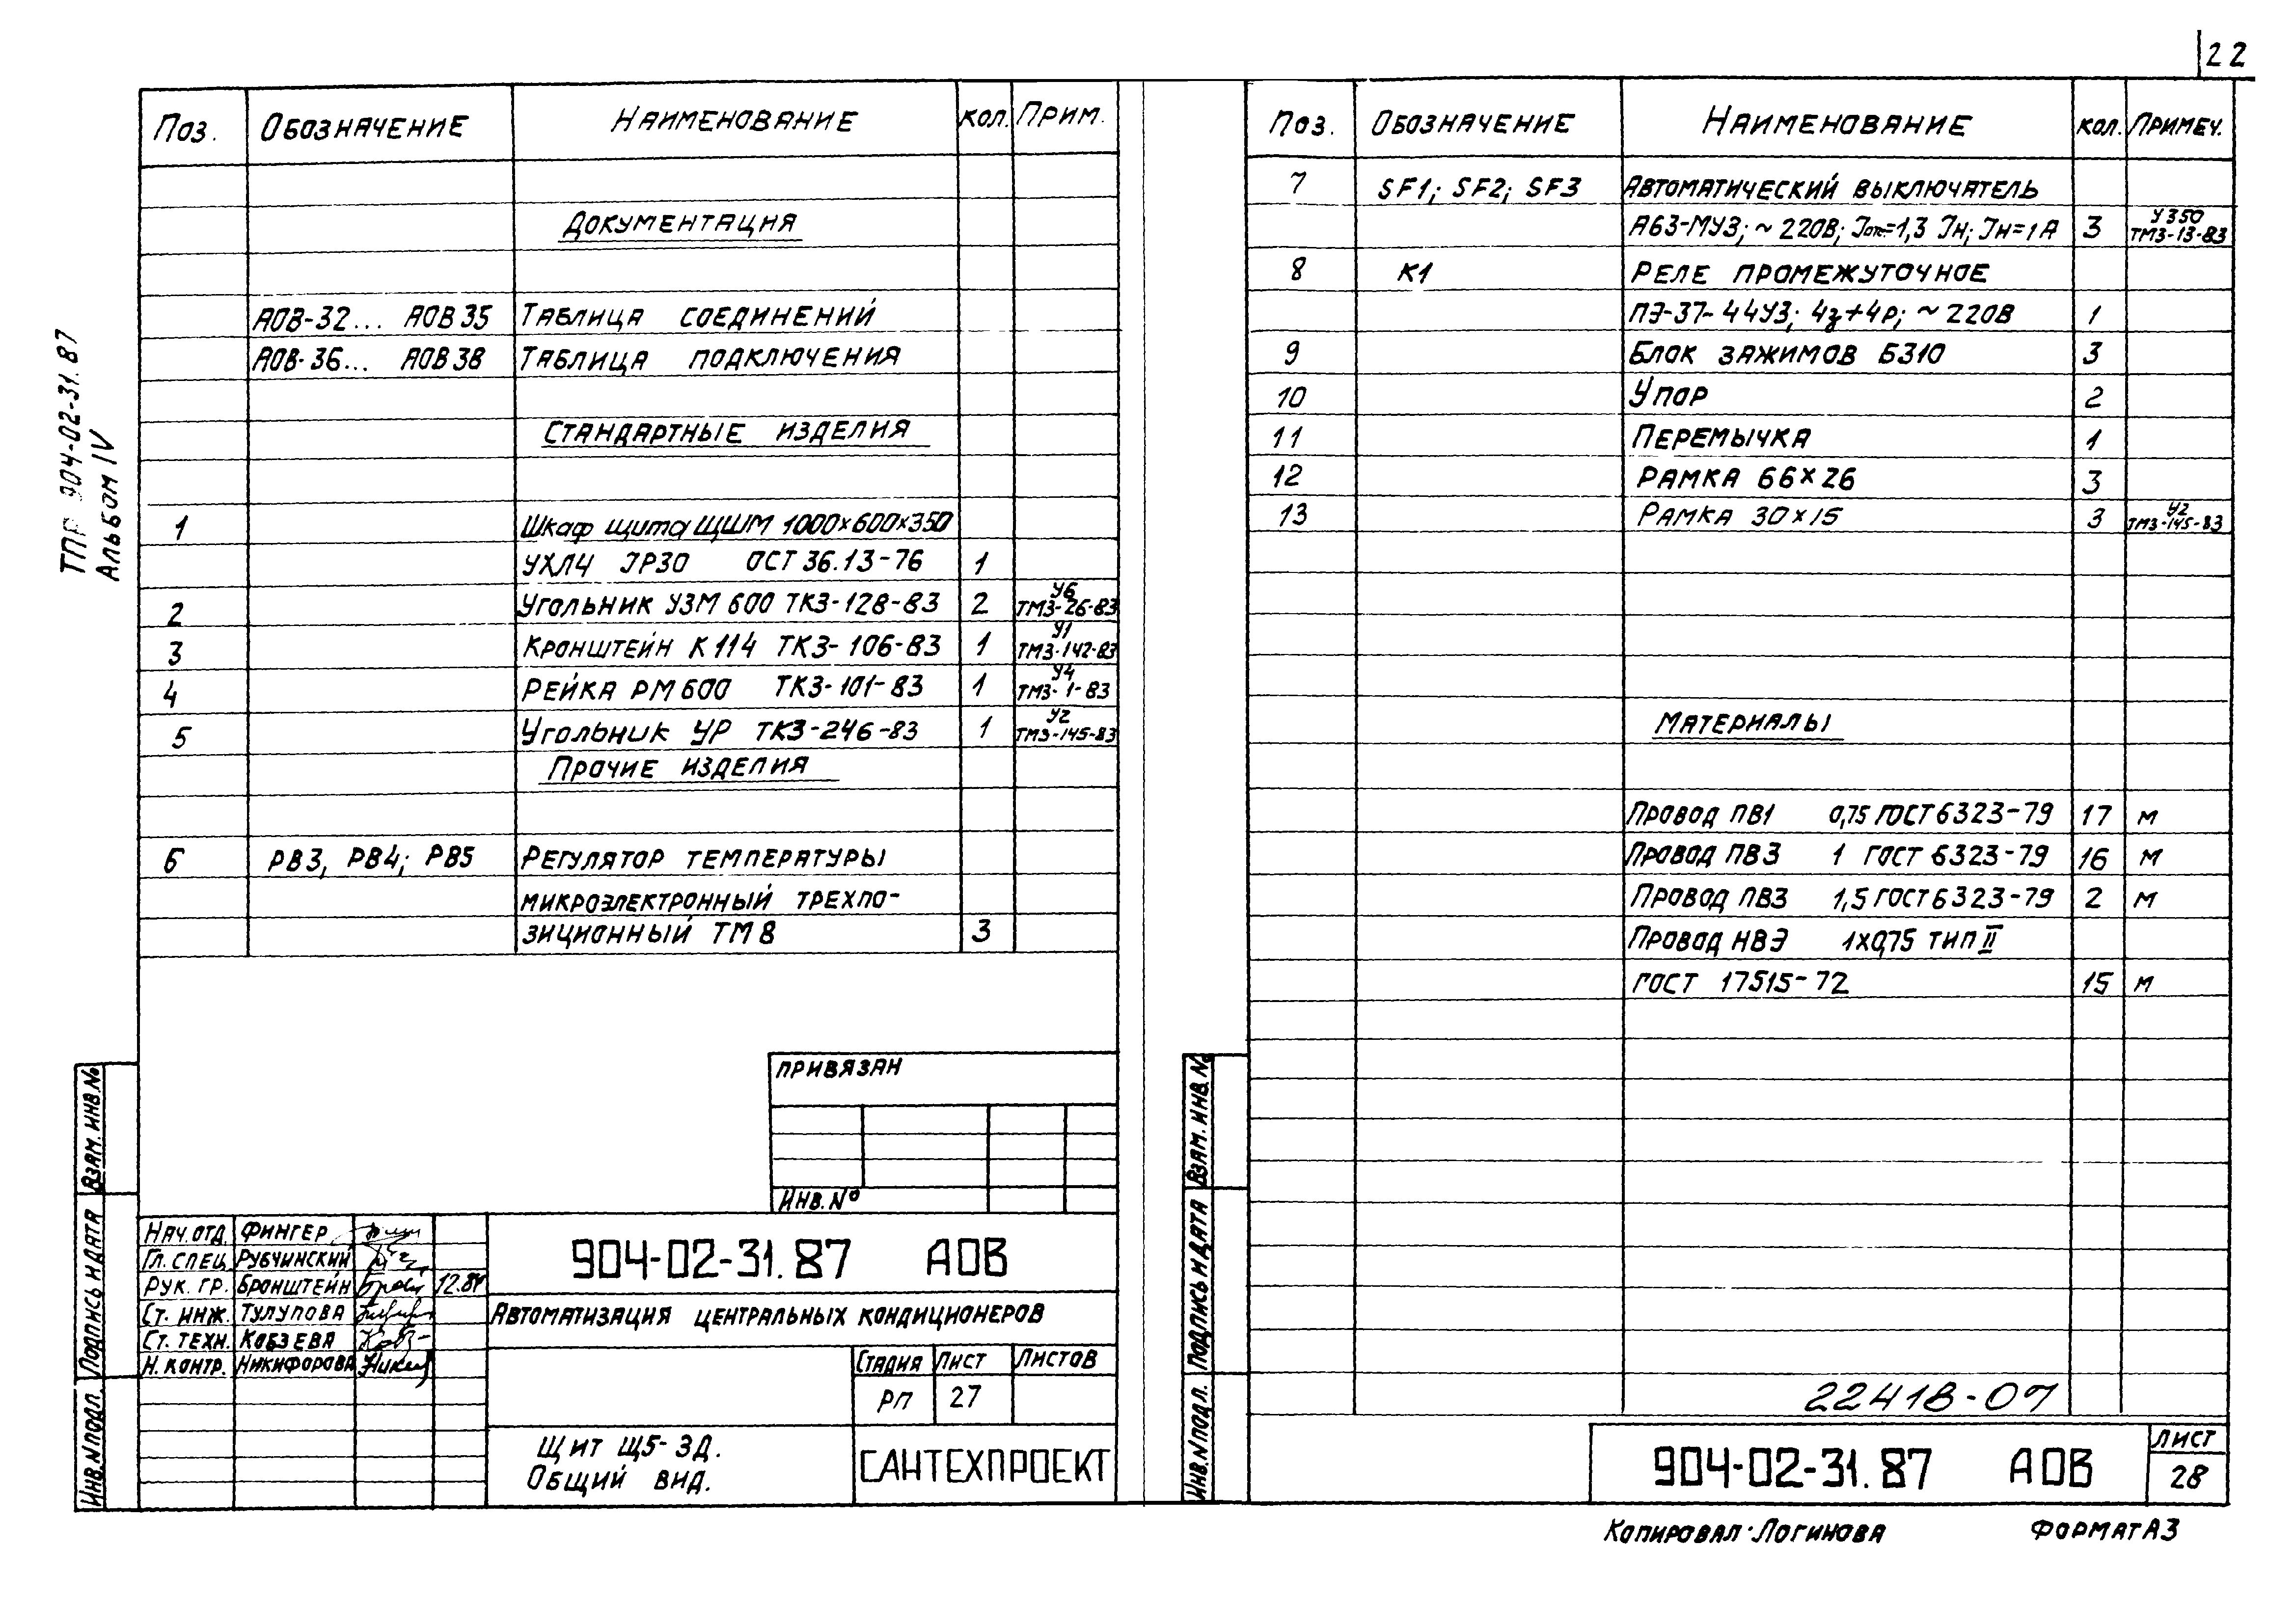 22
ТПР 904-02-31.87
Альбом IV
Поз. Обозначение Наименование кол. Прим.
Документация
АОВ-32... АОВ 35 Таблица соединений
АОВ-36... АОВ 38 Таблица подключения
Стандартные изделия
1 Шкаф щита ЩШМ 1000×600×350
УХЛ4 JP30 ОСТ 36.13-76 1
2 Угольник УЗМ 600 ТКЗ-128-83 2 У6 ТМЗ-26-83
3 Кронштейн К 114 ТКЗ-106-83 1 У1 ТМЗ-142-83
4 Рейка РМ 600 ТКЗ-101-83 1 У4 ТМЗ-1-83
5 Угольник УР ТКЗ-246-83 1 У2 ТМЗ-145-83
Прочие изделия
6 РВ3, РВ4; РВ5 Регулятор температуры
микроэлектронный трехпо-
зиционный ТМ 8 3
Привязан
Инв. №
Нач. отд. Фингер
Гл. спец. Рубчинский
Рук. гр. Бронштейн 12.87
Ст. инж. Тулупова
Ст. техн. Кобзева
Н. контр. Никифорова
904-02-31.87 АОВ
Автоматизация центральных кондиционеров
Стадия Лист Листов
РП 27
Щит Щ5-3Д.
Общий вид.
САНТЕХПРОЕКТ
Взам. инв. №
Подпись и дата
Инв. № подл.
Поз. Обозначение Наименование кол. Примеч.
7 SF1; SF2; SF3 Автоматический выключатель
А63-МУ3; ~220В; Jотс=1,3 Jн; Jн=1А 3 У350 ТМЗ-13-83
8 К1 Реле промежуточное
ПЭ-37-44У3; 4з+4р; ~220В 1
9 Блок зажимов Б310 3
10 Упор 2
11 Перемычка 1
12 Рамка 66×26 3
13 Рамка 30×15 3 У2 ТМЗ-145-83
Материалы
Провод ПВ1 0,75 ГОСТ 6323-79 17 м
Провод ПВ3 1 ГОСТ 6323-79 16 м
Провод ПВ3 1,5 ГОСТ 6323-79 2 м
Провод НВЭ 1×0,75 тип II
ГОСТ 17515-72 15 м
Взам. инв. №
Подпись и дата
Инв. № подл.
22418-07
904-02-31.87 АОВ
Лист
28
Копировал Логинова Формат А3